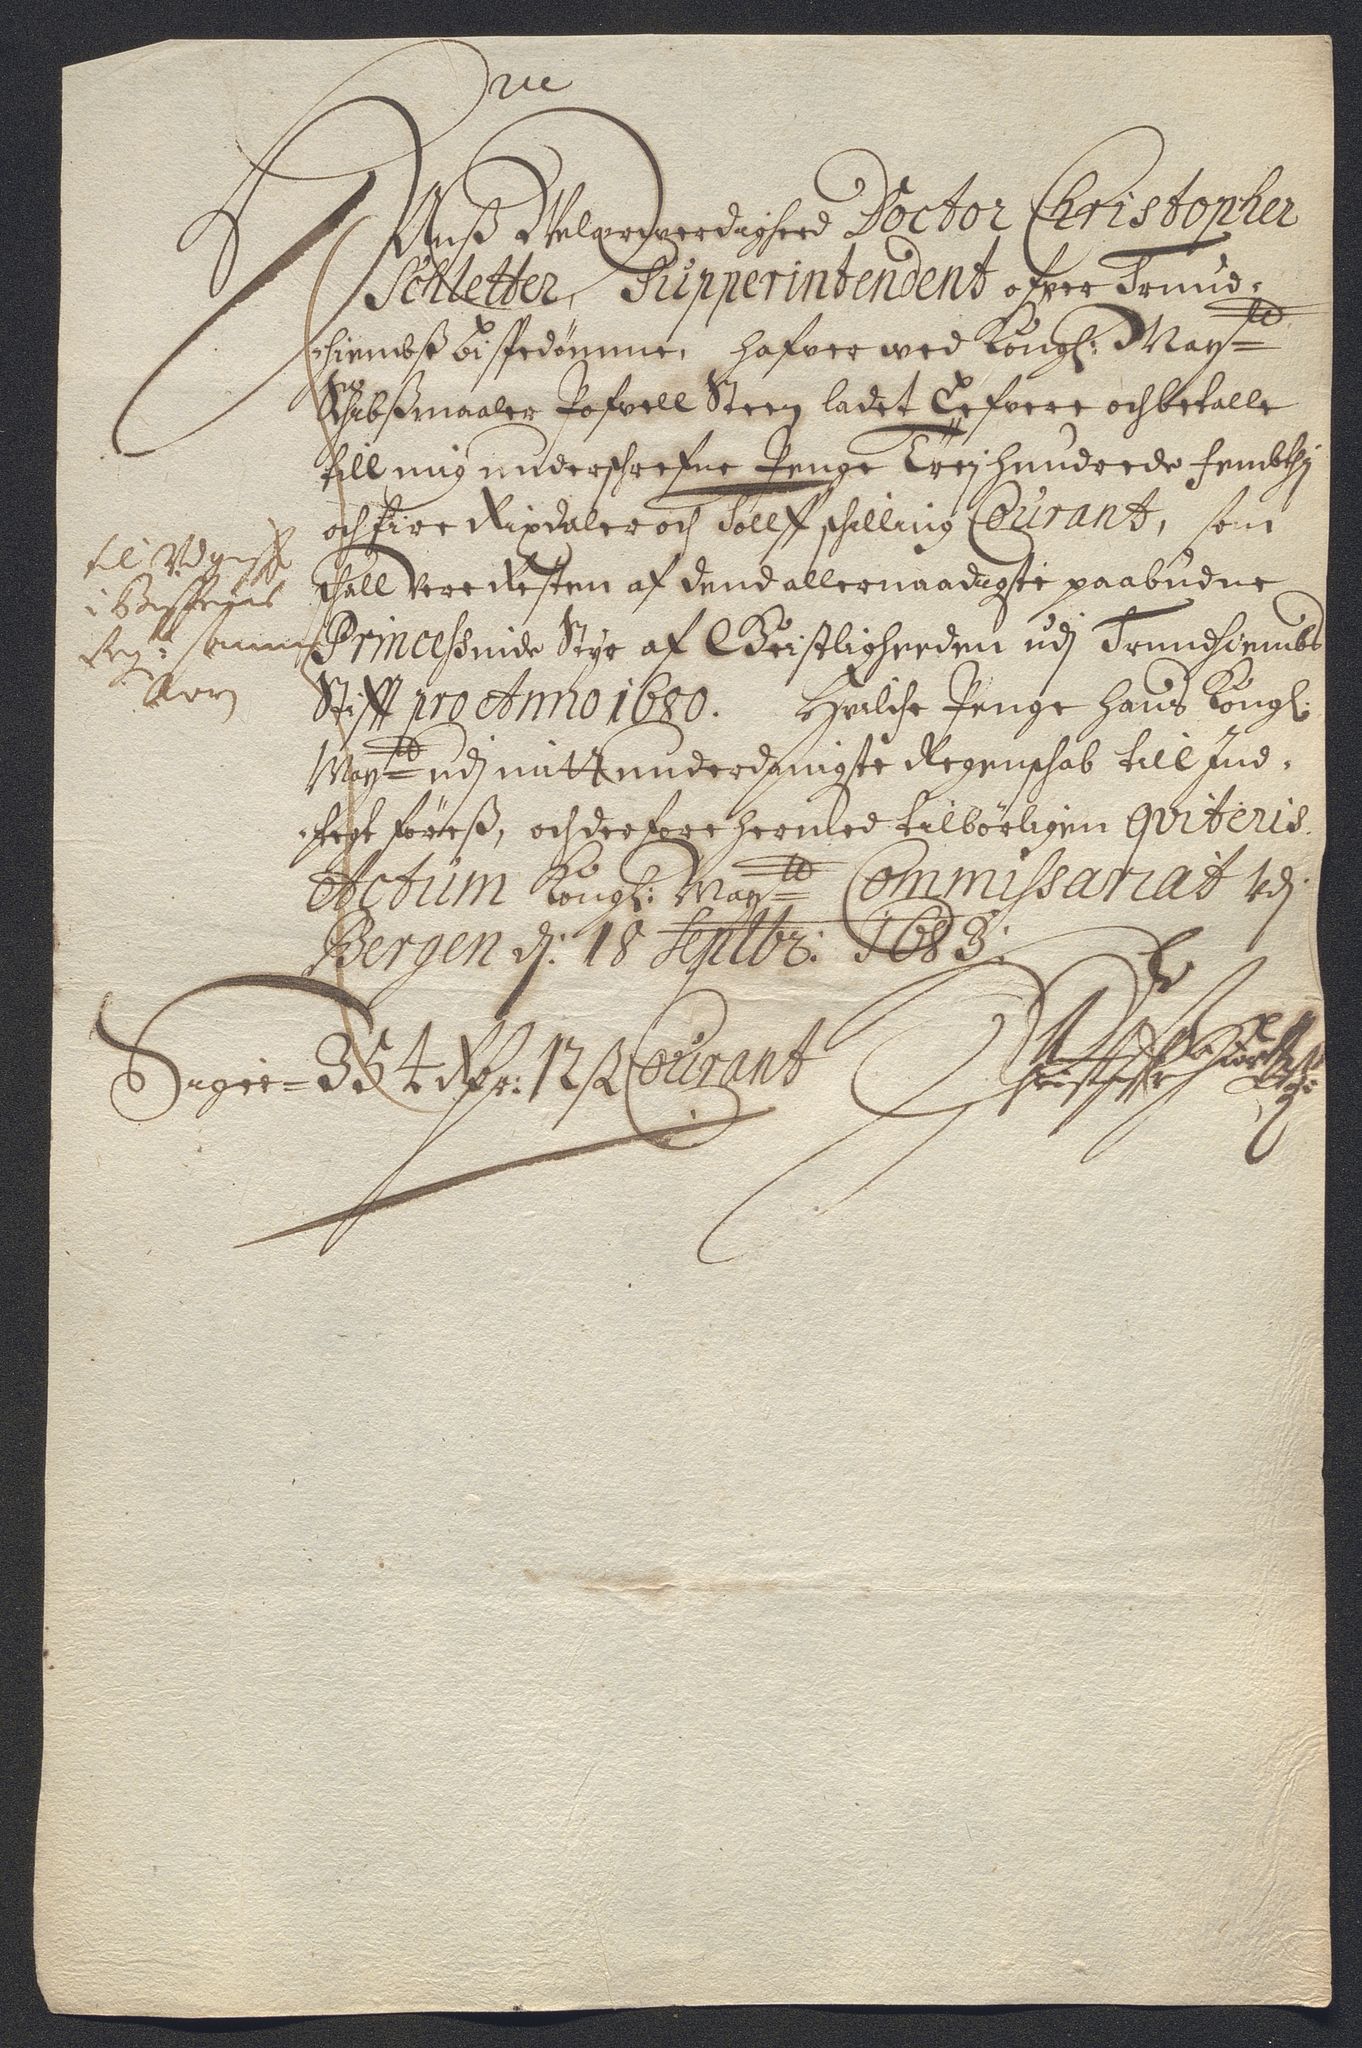 Hans Velærverdigheed Doctor Christopher
Schletter, Supperintendent ofver Trund-
hiembß Bispedömme, hafver ved Kongl: May:tt
Schibßmaaler Pofvell Steen ladet lefvere och betalle
till mig underschrefne Penge Trej hundrede fembthj
och fire Rixdaler och Tollf schilling Courant, som
schall vere Resten af dend allernaadigste paabudne
Princessinde Styr af Geistligheeden udj Trundhiembs
Stifft pro Anno 1680. Hvilche Penge Hans Kongl:
May:tt udj mitt underdanigste Regenschab till Ind-
tegt föreß, och derfore hermed tilbörligen qviteris.
Actum Kongl: May:tt Commissariat udj
Bergen dj: 18 Septbr: 1683:
til Udgifft
i Bispens
Reg:
Siger= 354 Rdr: 12 ß Courant